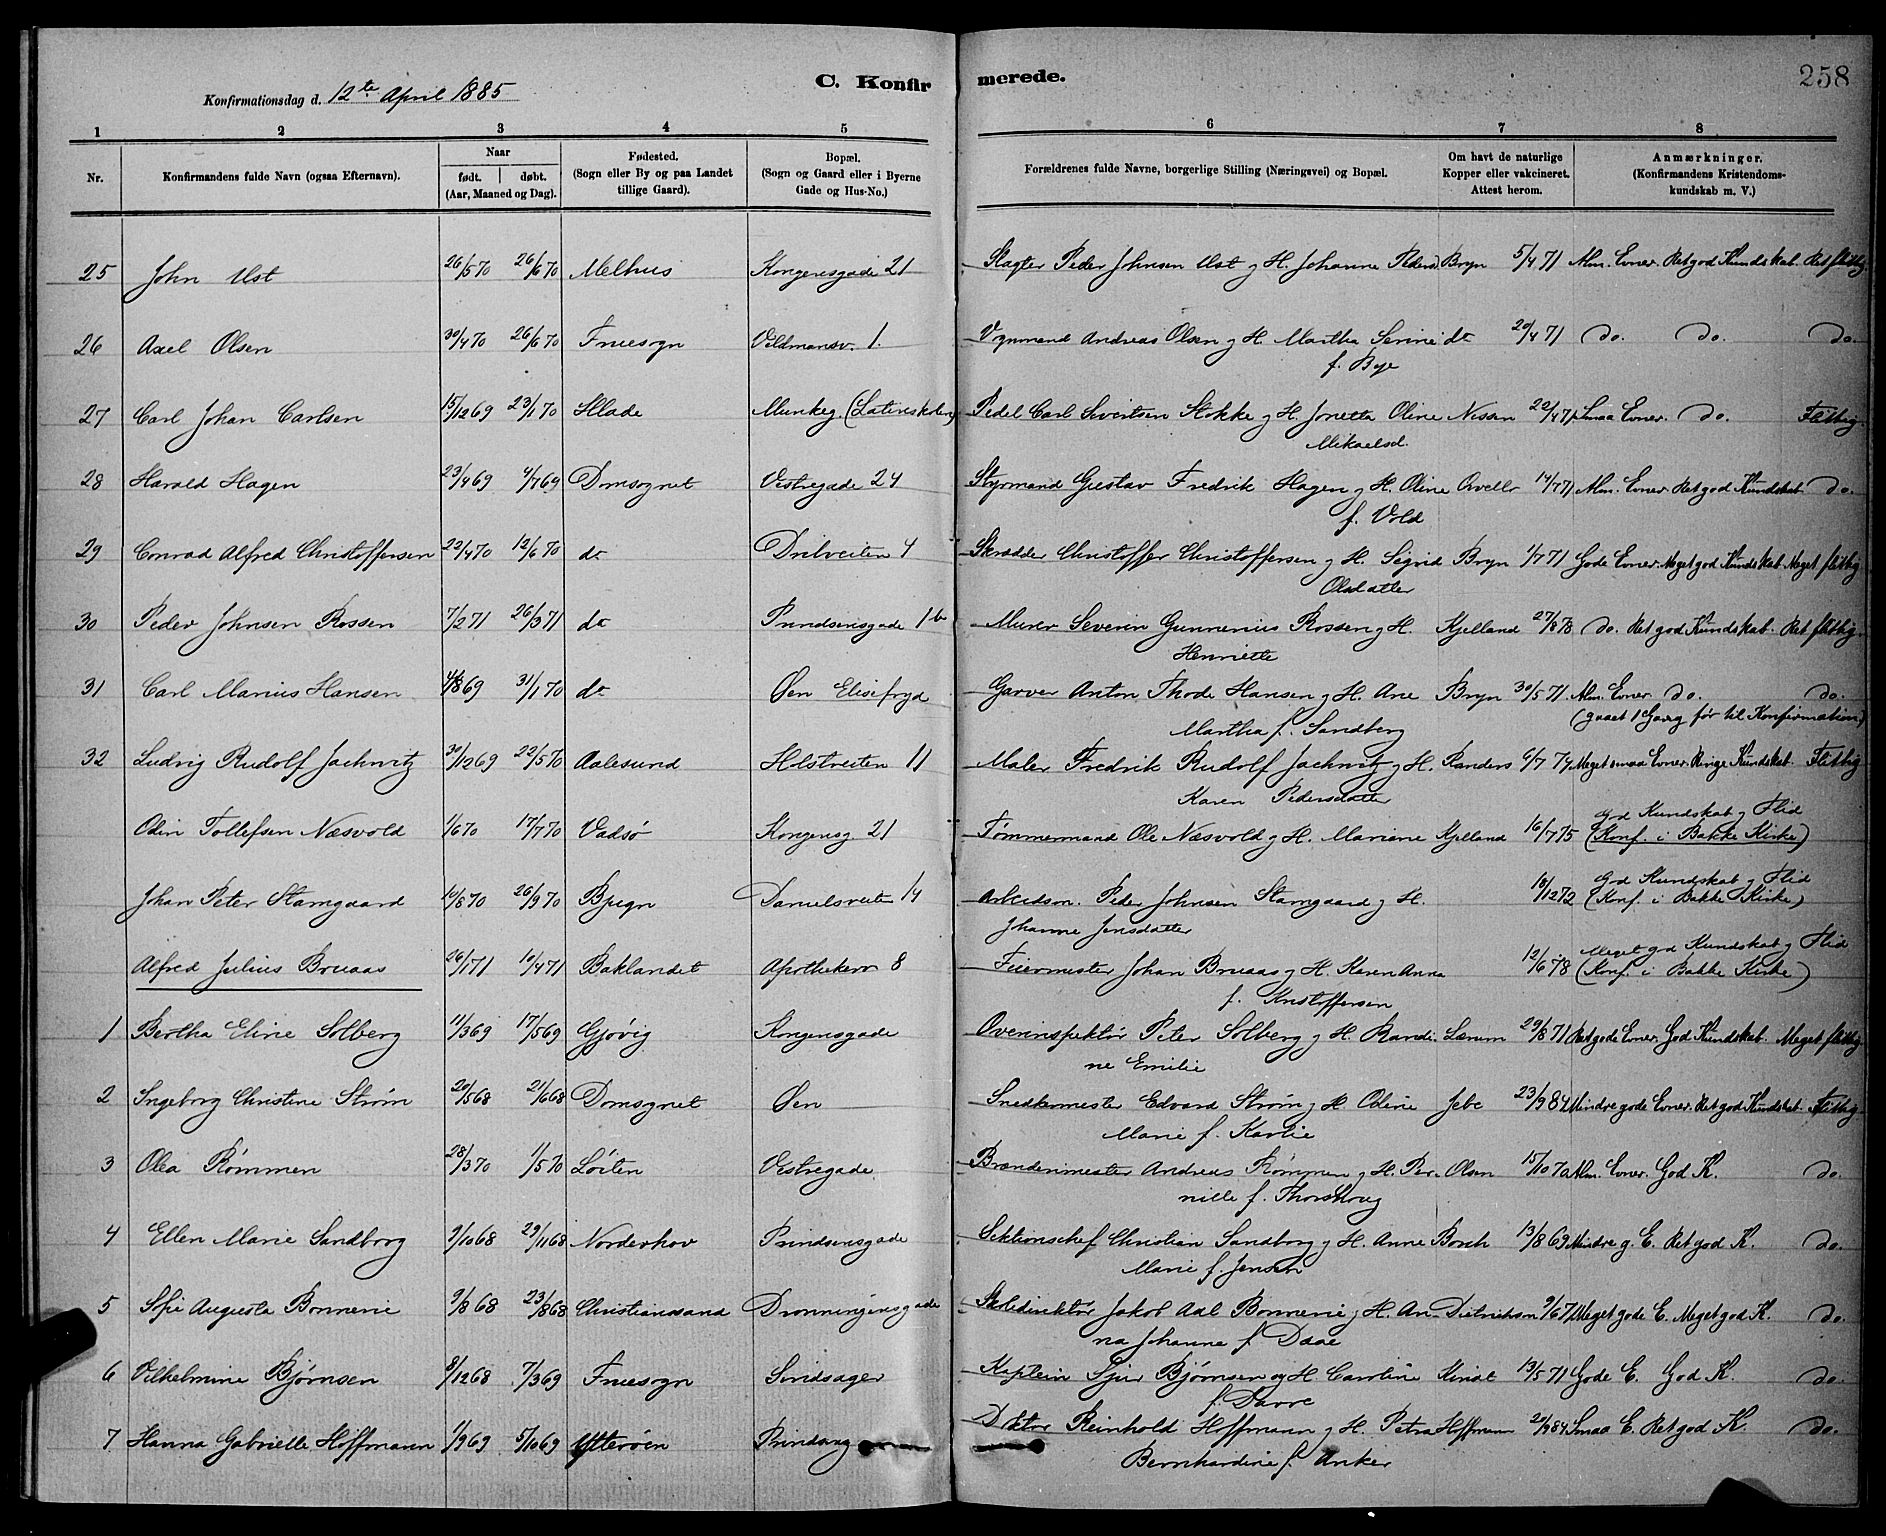 C. Konfirmerede.
258
Konfirmationsdag d. 12te April 1885
1 2 3 4 5 6 7 8
Nr. Konfirmandens fulde Navn (ogsaa Efternavn). Naar født. døbt. (Aar, Maaned og Dag). Fødested. (Sogn eller By og paa Landet tillige Gaard). Bopæl. (Sogn og Gaard eller i Byerne Gade og Hus-No.) Forældrenes fulde Navne, borgerlige Stilling (Næringsvei) og Bopæl. Om havt de naturlige Kopper eller vakcineret. Attest herom. Anmærkninger. (Konfirmandens Kristendomskundskab m. V.)
25 John Ust 26/5 70 26/6 70 Melhus Kongensgade 21 Slagter Peder Johnsen Ust og H. Johanna Pedersd. Bryn 5/4 71 Alm. Evner. Ret god Kundskab. Ret flittig
26 Axel Olsen 30/4 70 26/6 70 Fruesogn Veldmansv. 1. Vognmand Andreas Olsen og H. Martha Serine do 20/4 71 do. do. do.
f. Bye
27 Carl Johan Carlsen 15/12 69 23/1 70 Hlade Munkeg. (Latinskolen) Pedel Carl Sivertsen Stokke og H. Jonetta Oline Nissen 22/4 71 Smaa Evner. do. Flittig.
Mikaelsd.
28 Harald Hagen 23/4 69 4/7 69 Domsognet Vestregade 24 Styrmand Gustav Fredrik Hagen og H. Oline 14/7 71 Alm. Evner. Ret god Kundskab do.
f. Vold
29 Conrad Alfred Christoffersen 22/4 70 12/6 70 do Drilveiten 4 Skrædder Christoffer Christoffersen og H. Sigrid Bryn 1/7 71 Gode Evner. Meget god Kundskab. Meget flittig
Olsdatter
30 Peder Johnsen Rossen 7/2 71 26/3 71 do Prindsensgade 1b Murer Severin Gunnerius Rossen og H. Kjelland 27/8 78 do. Ret god Kundskab. Ret flittig.
Henriette
31 Carl Marius Hansen 4/8 69 31/1 70 do Øen Elisefryd Garver Anton Thode Hansen og H. Ane Bryn 30/5 71 Alm. Evner. do. do.
Martha f. Sandberg (gaaet 1 Gang før til Konfirmation)
32 Ludvig Rudolf Jachwitz 30/12 69 22/5 70 Aalesund Holstveiten 11 Maler Fredrik Rudolf Jachwitz og H. Randers 6/7 74 Meget smaa Evner. Ringe Kundskab. Flittig
Karen Pedersdatter
Odin Tollefsen Næsvold 1/6 70 17/7 70 Vadsø Kongensg. 21 Tømmermand Ole Næsvold og H. Mariane Kjelland 16/7 75 God Kundskab og Flid
(Konf. i Bakke Kirke)
Johan Peter Stamgaard 14/6 70 26/9 70 Bjugn Danielsveiten 14 Arbeidsm. Peder Johnsen Stamgaard og H. 18/12 72 God Kundskab og Flid
Johanne Jensdatter (Konf. i Bakke Kirke)
Alfred Julius Bruaas 26/1 71 10/4 71 Baklandet Apothekerv. 8 Feiermester Johan Bruaas og H. Karen Anna 12/6 78 Meget god Kundskab og Flid
f. Kristoffersen (Konf. i Bakke Kirke)
1 Bertha Eline Solberg 11/3 69 17/5 69 Gjøvig Kongensgade Overinspektør Peter Solberg og H. Randi- Lærum 29/8 71 Ret gode Evner. God Kundskab. Meget flittig
ne Emilie
2 Ingeborg Christine Strøm 20/5 68 21/6 68 Domsognet Øen Snedkermester Edvard Strøm og H Odine Jebe 23/9 84 Mindre gode Evner. Ret god Kundskab. Flittig
Marie f. Karlie
3 Olea Rømmen 28/3 70 1/5 70 Løiten Vestregade Brænderimester Andreas Rømmen og H. Per- Olsen 15/10 70 Alm. Evner. God K. do.
nille f. Thorshoug
4 Ellen Marie Sandborg 9/10 68 29/11 68 Norderhov Prindsensgade Sektionschef Christian Sandborg og H. Anne Borch 13/8 69 Mindre g. E. Ret god K. do.
Marie f. Jensen
5 Sofie Augusta Bonnevie 9/8 68 23/8 68 Christianssand Dronningensgade Skoledirektør Jakob Aal Bonnevie og H. An- Dietrichson 9/6 71 Meget gode E. Meget god K. do.
na Johanne f. Daae
6 Vilhelmine Bjørnsen 8/12 68 7/3 69 Fruesogn Sindsager Kaptein Sjur Bjørnsen og H. Caroline Kindt 13/5 71 Gode E. God K. do.
f. Darre
7 Hanna Gabrielle Hoffmann 1/9 69 5/10 69 Ytterøen Prindseng Doktor Reinhold Hoffmann og H. Petra Hoffmann 20/9 84 Smaa E. Ret god K. do.
Bernhardine f. Anker